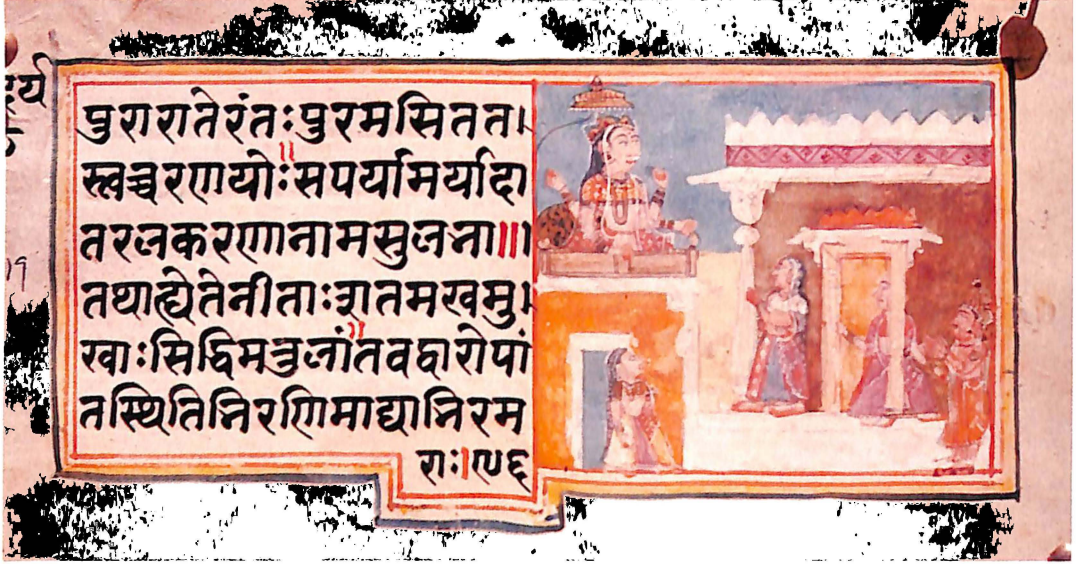 पुरारातेरंतःपुरमसितत।
स्त्वच्चरणयोः॥सपर्यामर्यादा
तरलकरणानामसुलभा॥।
तथाह्येतेनीताःशतमखमु।
खाःसिद्धिमतुलां॥तवद्वारोपां
तस्थितिभिरणिमाद्याभिरम
राः।९६